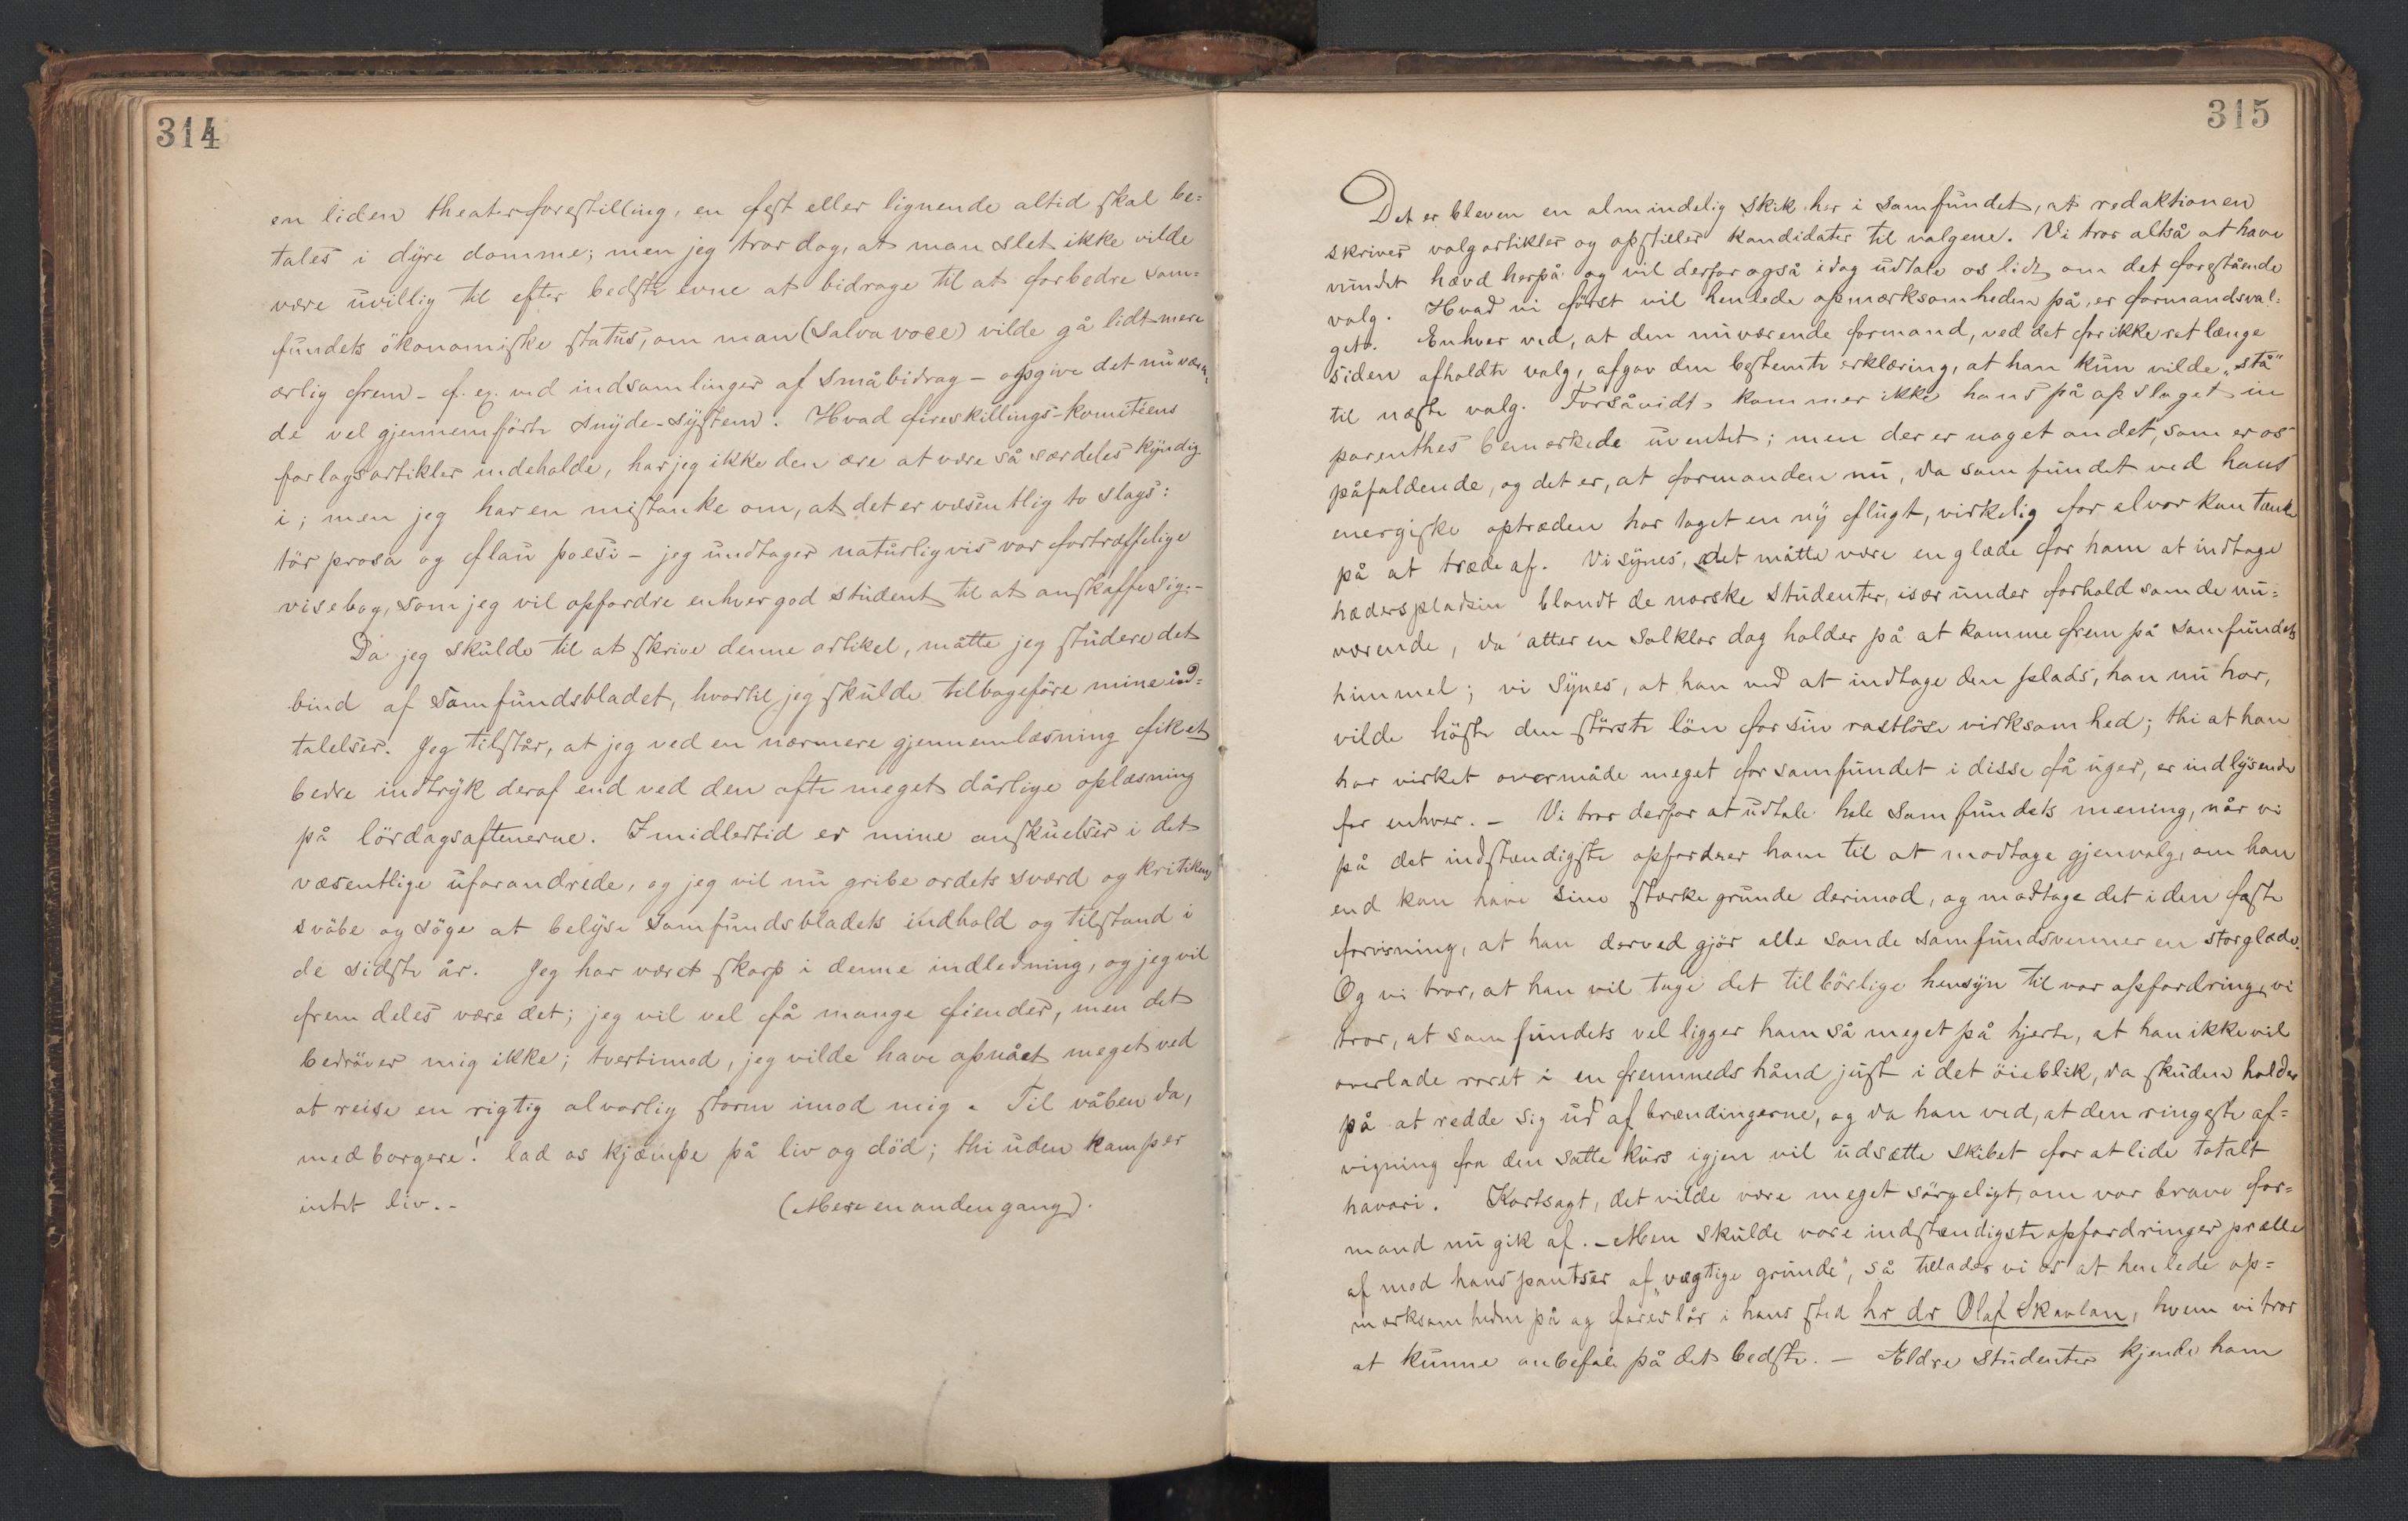 314
en liden theaterforestilling, en fest eller lignende altid skal be=
tales i dyre domme; men jeg tror dog, at man slet ikke vilde
være uvillig til efter bedste evne at bidrage til at forbedre sam=
fundets økonomiske status, om man (salva voce) vilde gå lidt mere
ærlig frem – f. ex. ved indsamlinger af småbidrag – opgive det nuværen=
de vel gjennemførte snyde-system. Hvad fireskillings-komiteens
forlagsartikler indeholde, har jeg ikke den ære at være så særdeles kyndig
i; men jeg har en mistanke om, at det er væsentlig to slags:
tør prosa og flau poesi – jeg undtager naturligvis vor fortræffelige
visebog, som jeg vil opfordre enhver god student til at anskaffe sig. –
Da jeg skulde til at skrive denne artikel, måtte jeg studere det
bind af Samfundsbladet, hvortil jeg skulde tilbageføre mine ud=
talelser. Jeg tilstår, at jeg ved en nærmere gjennemlæsning fik et
bedre indtryk deraf end ved den ofte meget dårlige oplæsning
på lørdagsaftenerne. Imidlertid er mine anskuelser i det
væsentlige uforandrede, og jeg vil nu gribe ordets sværd og kritikens
svøbe og søge at belyse Samfundsbladets indhold og tilstand i
de sidste år. Jeg har været skarp i denne indledning, og jeg vil
fremdeles være det; jeg vil vel få mange fiender, men det
bedrøver mig ikke; tvertimod, jeg vilde have opnået meget ved
at reise en rigtig alvorlig storm imod mig. Til våben da,
medborgere! lad os kjæmpe på liv og død; thi uden kamp er
intet liv. –
(Mere en anden gang).
315
Det er bleven en almindelig skik her i samfundet, at redaktionen
skriver valgartikler og opstiller kandidater til valgene. Vi tror altså at have
vundet hævd herpå og vil derfor også idag udtale os lidt om det forestående
valg. Hvad vi først vil henlede opmærksomheden på, er formandsval=
get. Enhver ved, at den nuværende formand, ved det for ikke ret længe
siden afholdte valg, afgav den bestemte erklæring, at han kun vilde „stå"
til næste valg. Forsåvidt kommer ikke hans på opslaget in
parenthes bemærkede uventet; men der er noget andet, som er os
påfaldende, og det er, at formanden nu, da samfundet ved hans
energiske optræden har taget en ny flugt, virkelig for alvor kan tænke
på at træde af. Vi synes, det måtte være en glæde for ham at indtage
hæderspladsen blandt de norske studenter, især under forhold som de nu=
værende, da atter en solklar dag holder på at komme frem på samfundets
himmel; vi synes, at han ved at indtage den plads, han nu har,
vilde høste den største løn for sin rastløse virksomhed; thi at han
har virket overmåde meget for samfundet i disse få uger, er indlysende
for enhver. – Vi tror derfor at udtale hele samfundets mening, når vi
på det indstændigste opfordrer ham til at modtage gjenvalg, om han
end kan have sine stærke grunde derimod, og modtage det i den faste
forvisning, at han derved gjør alle sande samfundsvenner en stor glæde.
Og vi tror, at han vil tage det tilbørlige hensyn til vor opfordring, vi
tror, at samfundets vel ligger ham så meget på hjerte, at han ikke vil
overlade roret i en fremmeds hånd just i det øieblik, da skuden holder
på at redde sig ud af brændingerne, og da han ved, at den ringeste af=
vigning fra den satte kurs igjen vil udsætte skibet for at lide totalt
havari. Kortsagt, det vilde være meget sørgeligt, om vor brave for=
mand nu gik af. – Men skulde vore indstændigste opfordringer prælle
af mod hans pantser af „vægtige grunde", så tillader vi os at henlede op=
mærksomheden på og foreslår i hans sted hr dr Olaf Skavlan, hvem vi tror
at kunne anbefale på det bedste. – Ældre studenter kjende ham